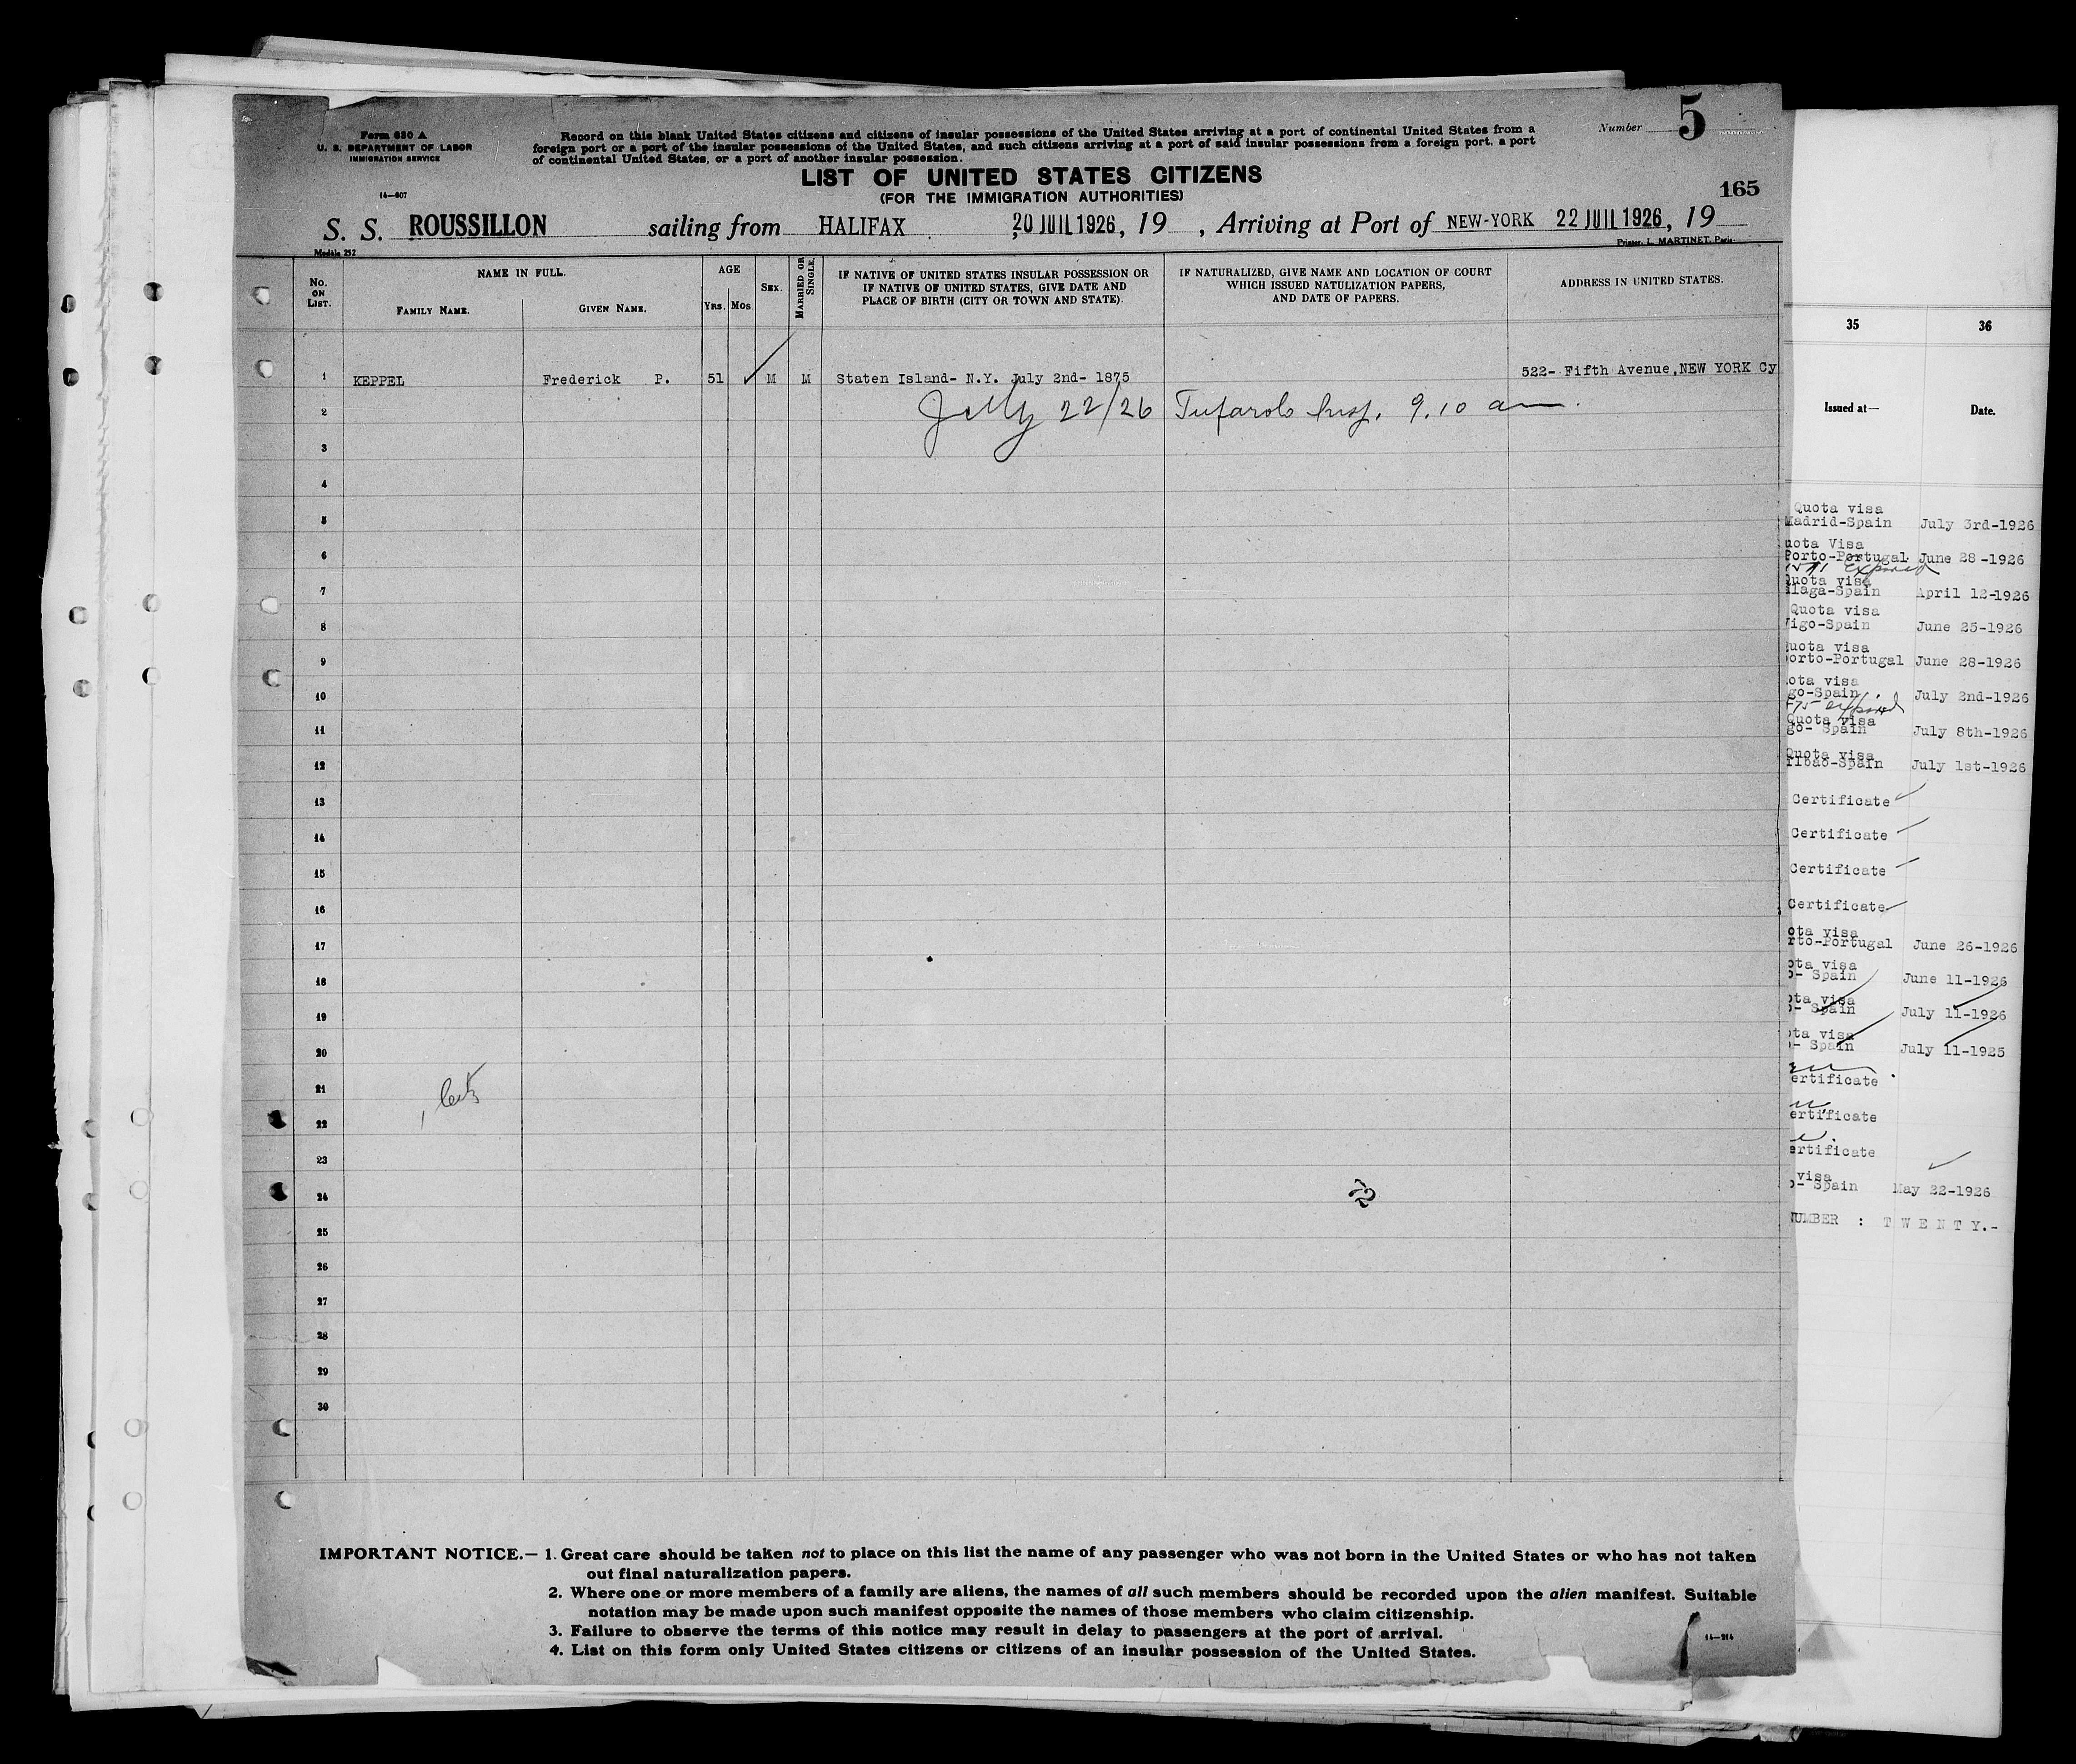 Form 630 A
U. S. DEPARTMENT OF LABOR
IMMIGRATION SERVICE
14—607
Record on this blank United States citizens and citizens of insular possessions of the United States arriving at a port of continental United States from a
foreign port or a port of the insular possessions of the United States, and such citizens arriving at a port of said insular possessions from a foreign port, a port
of continental United States, or a port of another insular possession.
Number 5
LIST OF UNITED STATES CITIZENS
(FOR THE IMMIGRATION AUTHORITIES)
165
S. S. ROUSSILLON sailing from HALIFAX 20 JUIL 1926, 19 , Arriving at Port of NEW-YORK 22 JUIL 1926, 19
Modèle 252
Printer, L. MARTINET, Paris.
No. ON LIST.
NAME IN FULL.
FAMILY NAME.
GIVEN NAME.
AGE
Yrs. Mos
SEX.
MARRIED OR SINGLE.
IF NATIVE OF UNITED STATES INSULAR POSSESSION OR
IF NATIVE OF UNITED STATES, GIVE DATE AND
PLACE OF BIRTH (CITY OR TOWN AND STATE).
IF NATURALIZED, GIVE NAME AND LOCATION OF COURT
WHICH ISSUED NATULIZATION PAPERS,
AND DATE OF PAPERS.
ADDRESS IN UNITED STATES.
1 KEPPEL Frederick P. 51 M M Staten Island- N.Y. July 2nd- 1875 522- Fifth Avenue,NEW YORK Cy
2 July 22/26 Insp. 9.10 am.
3
4
5
6
7
8
9
10
11
12
13
14
15
16
17
18
19
20
21
22
23
24
25
26
27
28
29
30
IMPORTANT NOTICE.— 1. Great care should be taken not to place on this list the name of any passenger who was not born in the United States or who has not taken
out final naturalization papers.
2. Where one or more members of a family are aliens, the names of all such members should be recorded upon the alien manifest. Suitable
notation may be made upon such manifest opposite the names of those members who claim citizenship.
3. Failure to observe the terms of this notice may result in delay to passengers at the port of arrival.
4. List on this form only United States citizens or citizens of an insular possession of the United States.
14—214
35 36
Issued at— Date.
Quota visa
Madrid-Spain July 3rd-1926
uota Visa
Porto-Portugal June 28-1926
expired
Quota visa
laga-Spain April 12-1926
Quota visa
Vigo-Spain June 25-1926
uota visa
orto-Portugal June 28-1926
ota visa
go-Spain July 2nd-1926
expired
Quota visa
go- Spain July 8th-1926
Quota visa
ilbao-Spain July 1st-1926
Certificate
Certificate
Certificate
Certificate
ota visa
rto-Portugal June 26-1926
ota visa
o- Spain June 11-1926
ota visa
o- Spain July 11-1926
ota visa
- Spain July 11-1925
ertificate
ertificate
ertificate
visa
o- Spain May 22-1926
NUMBER : T W E N T Y.-